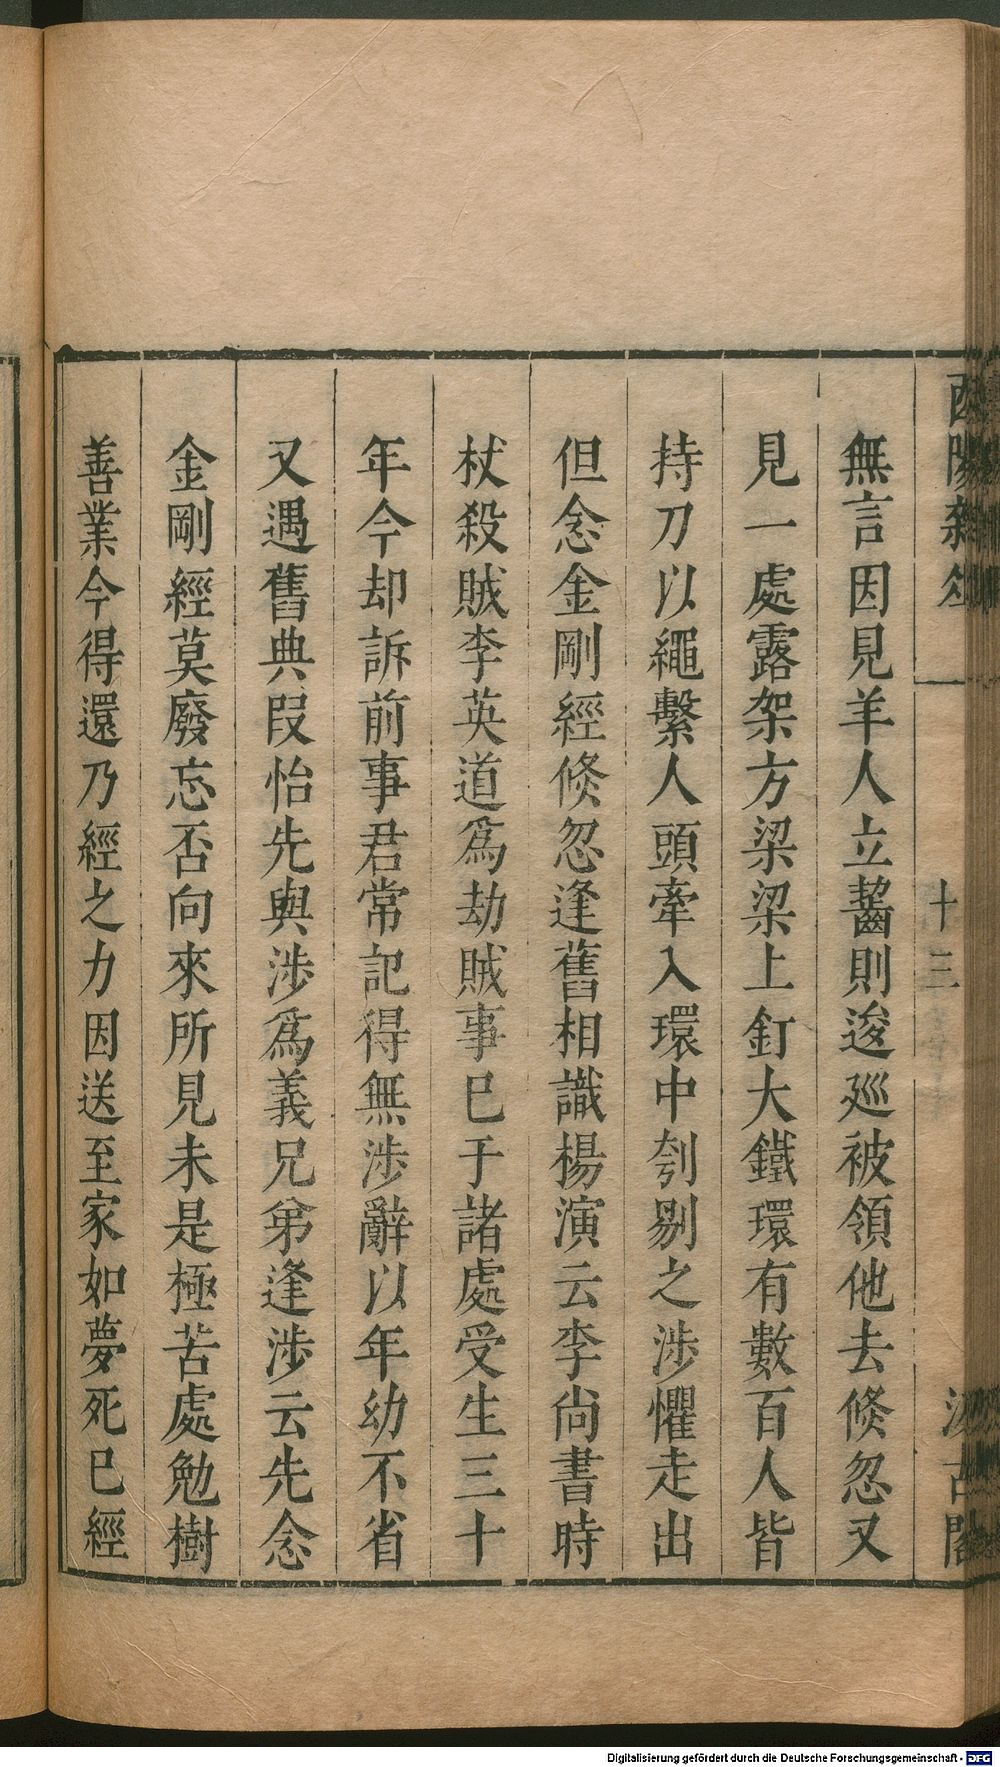 酉陽雜俎
十三
汲古閣
無言因見羊人立齧則逡廵被領他去倐忽又
見一處露架方梁梁上釘大鐵環有數百人皆
持刀以繩繫人頭牽入環中刳剔之涉懼走出
但念金剛經倐忽逢舊相識楊演云李尚書時
杖殺賊李英道爲劫賊事巳于諸處受生三十
年今却訴前事君常記得無涉辭以年幼不省
又遇舊典叚怡先與涉爲義兄弟逢涉云先念
金剛經莫廢忘否向來所見未是極苦處勉樹
善業今得還乃經之力因送至家如夢死巳經
Digitalisierung gefördert durch die Deutsche Forschungsgemeinschaft - DFG